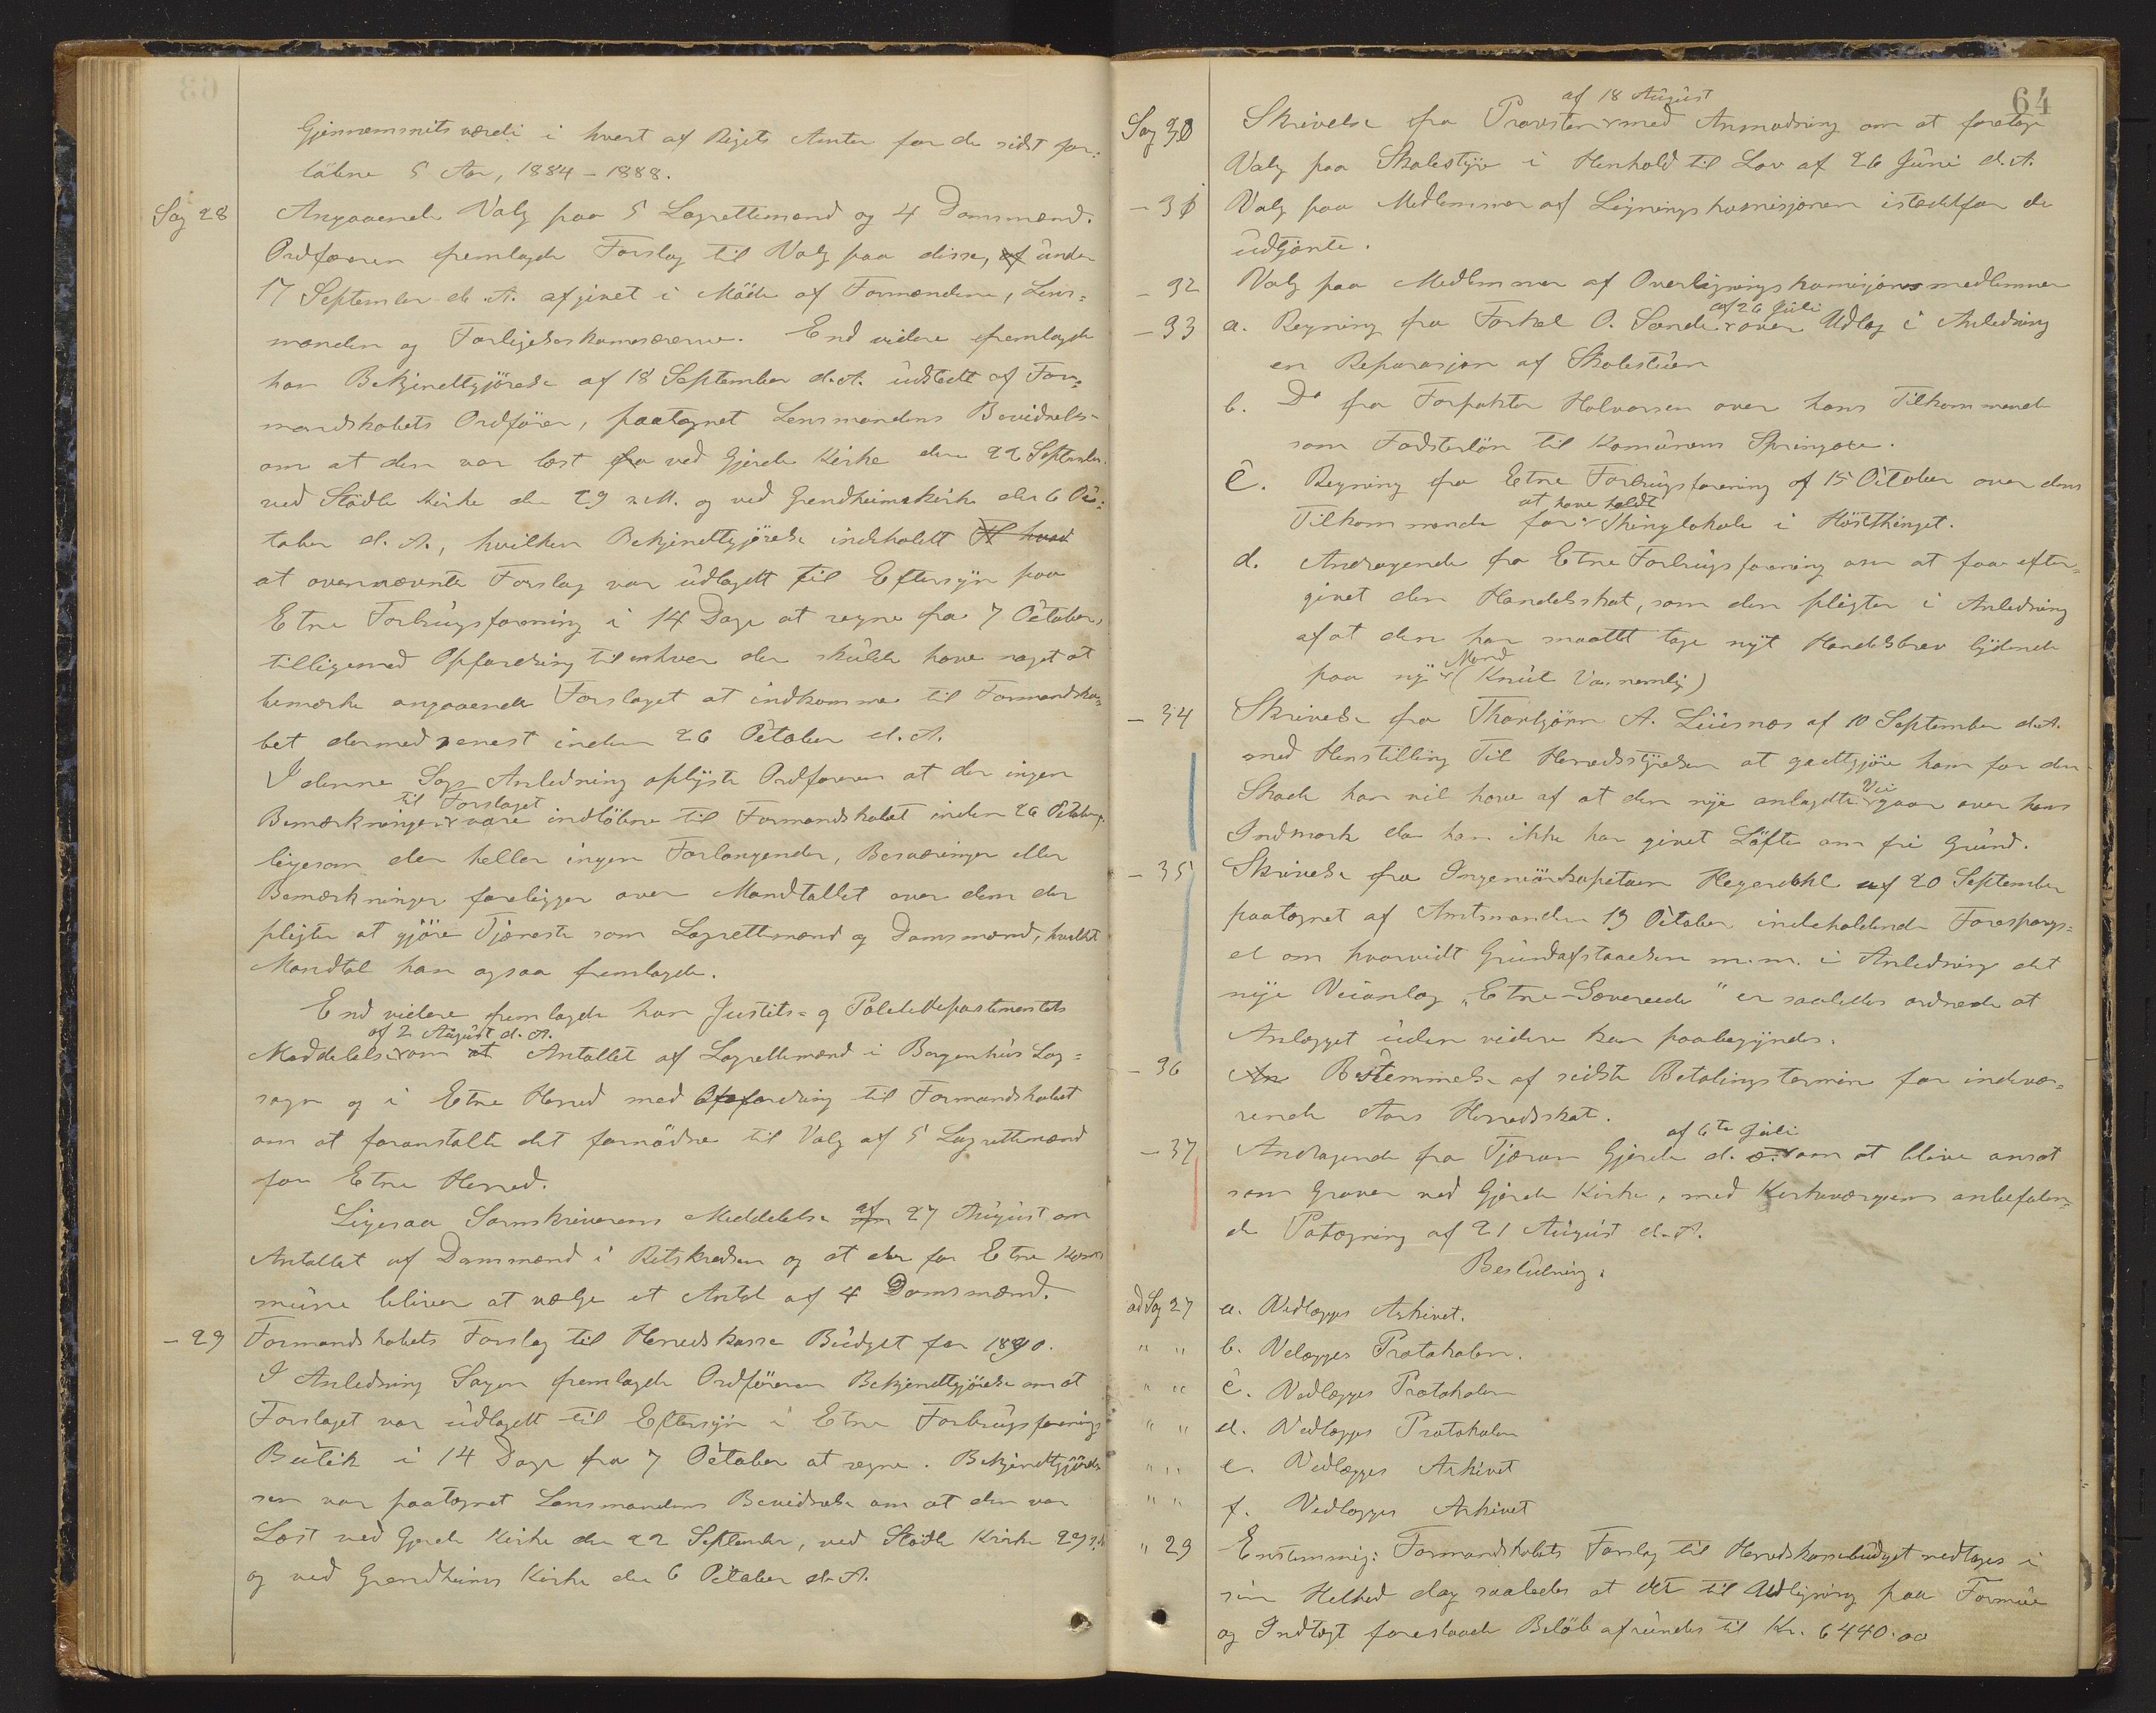 Gjennemsnitsværdi i hvert af Rigets Amter for de sidst for-
løbne 5 Aar, 1884-1888.
Sag 28 Angaaende Valg paa 5 Lagrettemænd og 4 Domsmænd.
Ordføreren fremlagde Forslag til Valg paa disse, af under
17 September d. A. afgivet i Møde af Formændene, Lens-
manden og Forligelseskomisærerne. End videre fremlagde
han Bekjendtgjørelse af 18 September d. A. udstedt af For-
mandskabets Ordfører, paategnet Lensmandens Bevidnelse
om at den var læst fra ved Gjerde Kirke den 22 September
ved Stødle Kirke den 29 s. M. og ved Grendheimskirke den 6 Oc-
tober d. A., hvilken Bekjendtgjørelse indeholdt
at ovennævnte Forslag var udlagdt til Eftersyn paa
Etne Forbrugsforening i 14 Dage at regne fra 7 October,
tilligemed Opfordring til enhver der skulde have noget at
bemærke angaaende Forslaget at indkomme til Formandska-
bet dermed senest inden 26 October d. A.
I denne Sags Anledning oplyste Ordføreren at der ingen
til Forslaget
Bemærkninger vare indløbne til Formandskabet inden 26 October,
ligesom der heller ingen Forlangender, Besværinger eller
Bemærkninger foreligger over Mandtallet over dem der
pligter at gjøre Tjeneste som Lagrettemænd og Domsmænd, hvilket
Mandtal han ogsaa fremlagde.
End videre fremlagde han Justits- og Politidepartementets
af 2 August d. A.
Meddelelse om at Antallet af Lagrettemænd i Bergenhus Lag-
sogn og i Etne Herred med Opfordring til Formandskabet
om at foranstalte det fornødne til Valg af 5 Lagrettemænd
for Etne Herred.
Ligesaa Sorenskriverens Meddelelse af 27 August om
Antallet af Domsmænd i Retskredsen og at der for Etne Kom-
mune bliver at vælge et Antal af 4 Domsmænd.
- 29 Formandskabets Forslag til Herredskasse Budget for 1890.
I Anledning Sagen fremlagde Ordføreren Bekjendtgjørelse om at
Forslaget var udlagdt til Eftersyn i Etne Forbrugsforenings
Butik i 14 Dage fra 7 October at regne. Bekjendtgjørel-
sen var paategnet Lensmandens Bevidnelse om at den var
Læst ved Gjerde Kirke den 22 September, ved Stødle Kirke 29 s. M.
og ved Grendheims Kirke den 6 October d. A.
64
af 18 August
Sag 30 Skrivelse fra Provsten med Anmodning om at foretage
Valg paa Skolestyre i Henhold til Lov af 26 Juni d. A.
- 31 Valg paa Medlemmer af Ligningskomisjonen istedetfor de
udtjente.
- 32 Valg paa Medlemmer af Overligningskomisjonsmedlemmer
af 26 Juli
- 33 a. Regning fra Torkel O. Sande over Udlæg i Anledning
en Reparasjon af Skolestuen
b. Do fra Forpakter Halvorsen over hans Tilkommende
som Fodsterløn til Komunens Springoxe.
c. Regning fra Etne Forbrugsforening af 15 October over dens
at have holdt
Tilkommende for Thinglokale i Høstthinget.
d. Andragende fra Etne Forbrugsforening om at faa efter-
givet den Handelsskat, som den pligter i Anledning
af at den har maattet tage nyt Handelsbrev lydende
Mand
paa ny (Knut Vaa nemlig)
- 34 Skrivelse fra Thorbjørn A. Liusnes af 10 September d. A.
med Henstilling Til Herredsstyrelsen at godtgjøre ham for den
Vei
Skade han vil have af at den nye anlagdte gaar over hans
Indmark da han ikke har givet Løfte om fri Grund.
- 35 Skrivelse fra Ingeniørkaptein Hegerdahl af 20 September
paategnet af Amtmanden 19 October indeholdende Forespørgs-
el om hvorvidt Grundafstaaelsen m. m. i Anledning det
nye Veianlæg "Etne-Sævereide" er saaledes ordnede at
Anlægget uden videre kan paabegyndes.
- 36 Bestemmelse af sidste Betalingstermin for indevæ-
rende Aars Herredsskat.
af 6te Juli
- 37 Andragende fra Tjæran Gjerde d. æ. om at blive ansat
som Graver ved Gjerde Kirke, med Kirkeværgens anbefalen-
de Patægning af 21 August d. A.
Beslutning:
ad Sag 27 a. Vedlægges Arkivet.
" " b. Velægges Protokolen.
" " c. Vedlægges Protokolen
" " d. Vedlægges Protokolen
" " e. Vedlægges Arkivet
" " f. Vedlægges Arkivet
" 29 Enstemmig: Formandskabets Forslag til Herredskassebudget vedtages i
sin Helhed dog saaledes at det til Udligning paa Formue
og Indtægt foreslaaede Beløb afrundes til Kr. 6440.00